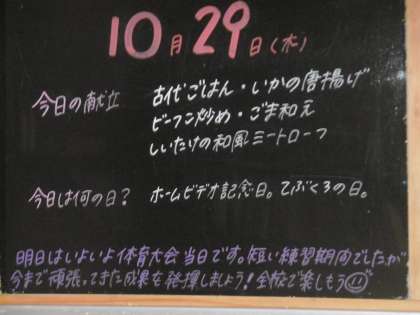 10月29日(木)
今日の献立 古代ごはん・いかの唐揚げ
ビーフン炒め・ごま和え
しいたけの和風ミートローフ
今日は何の日? ホームビデオ記念日。てぶくろの日。
明日はいよいよ体育大会当日です。短い練習期間でしたが
今まで頑張ってきた成果を発揮しましょう!全校で楽しもう